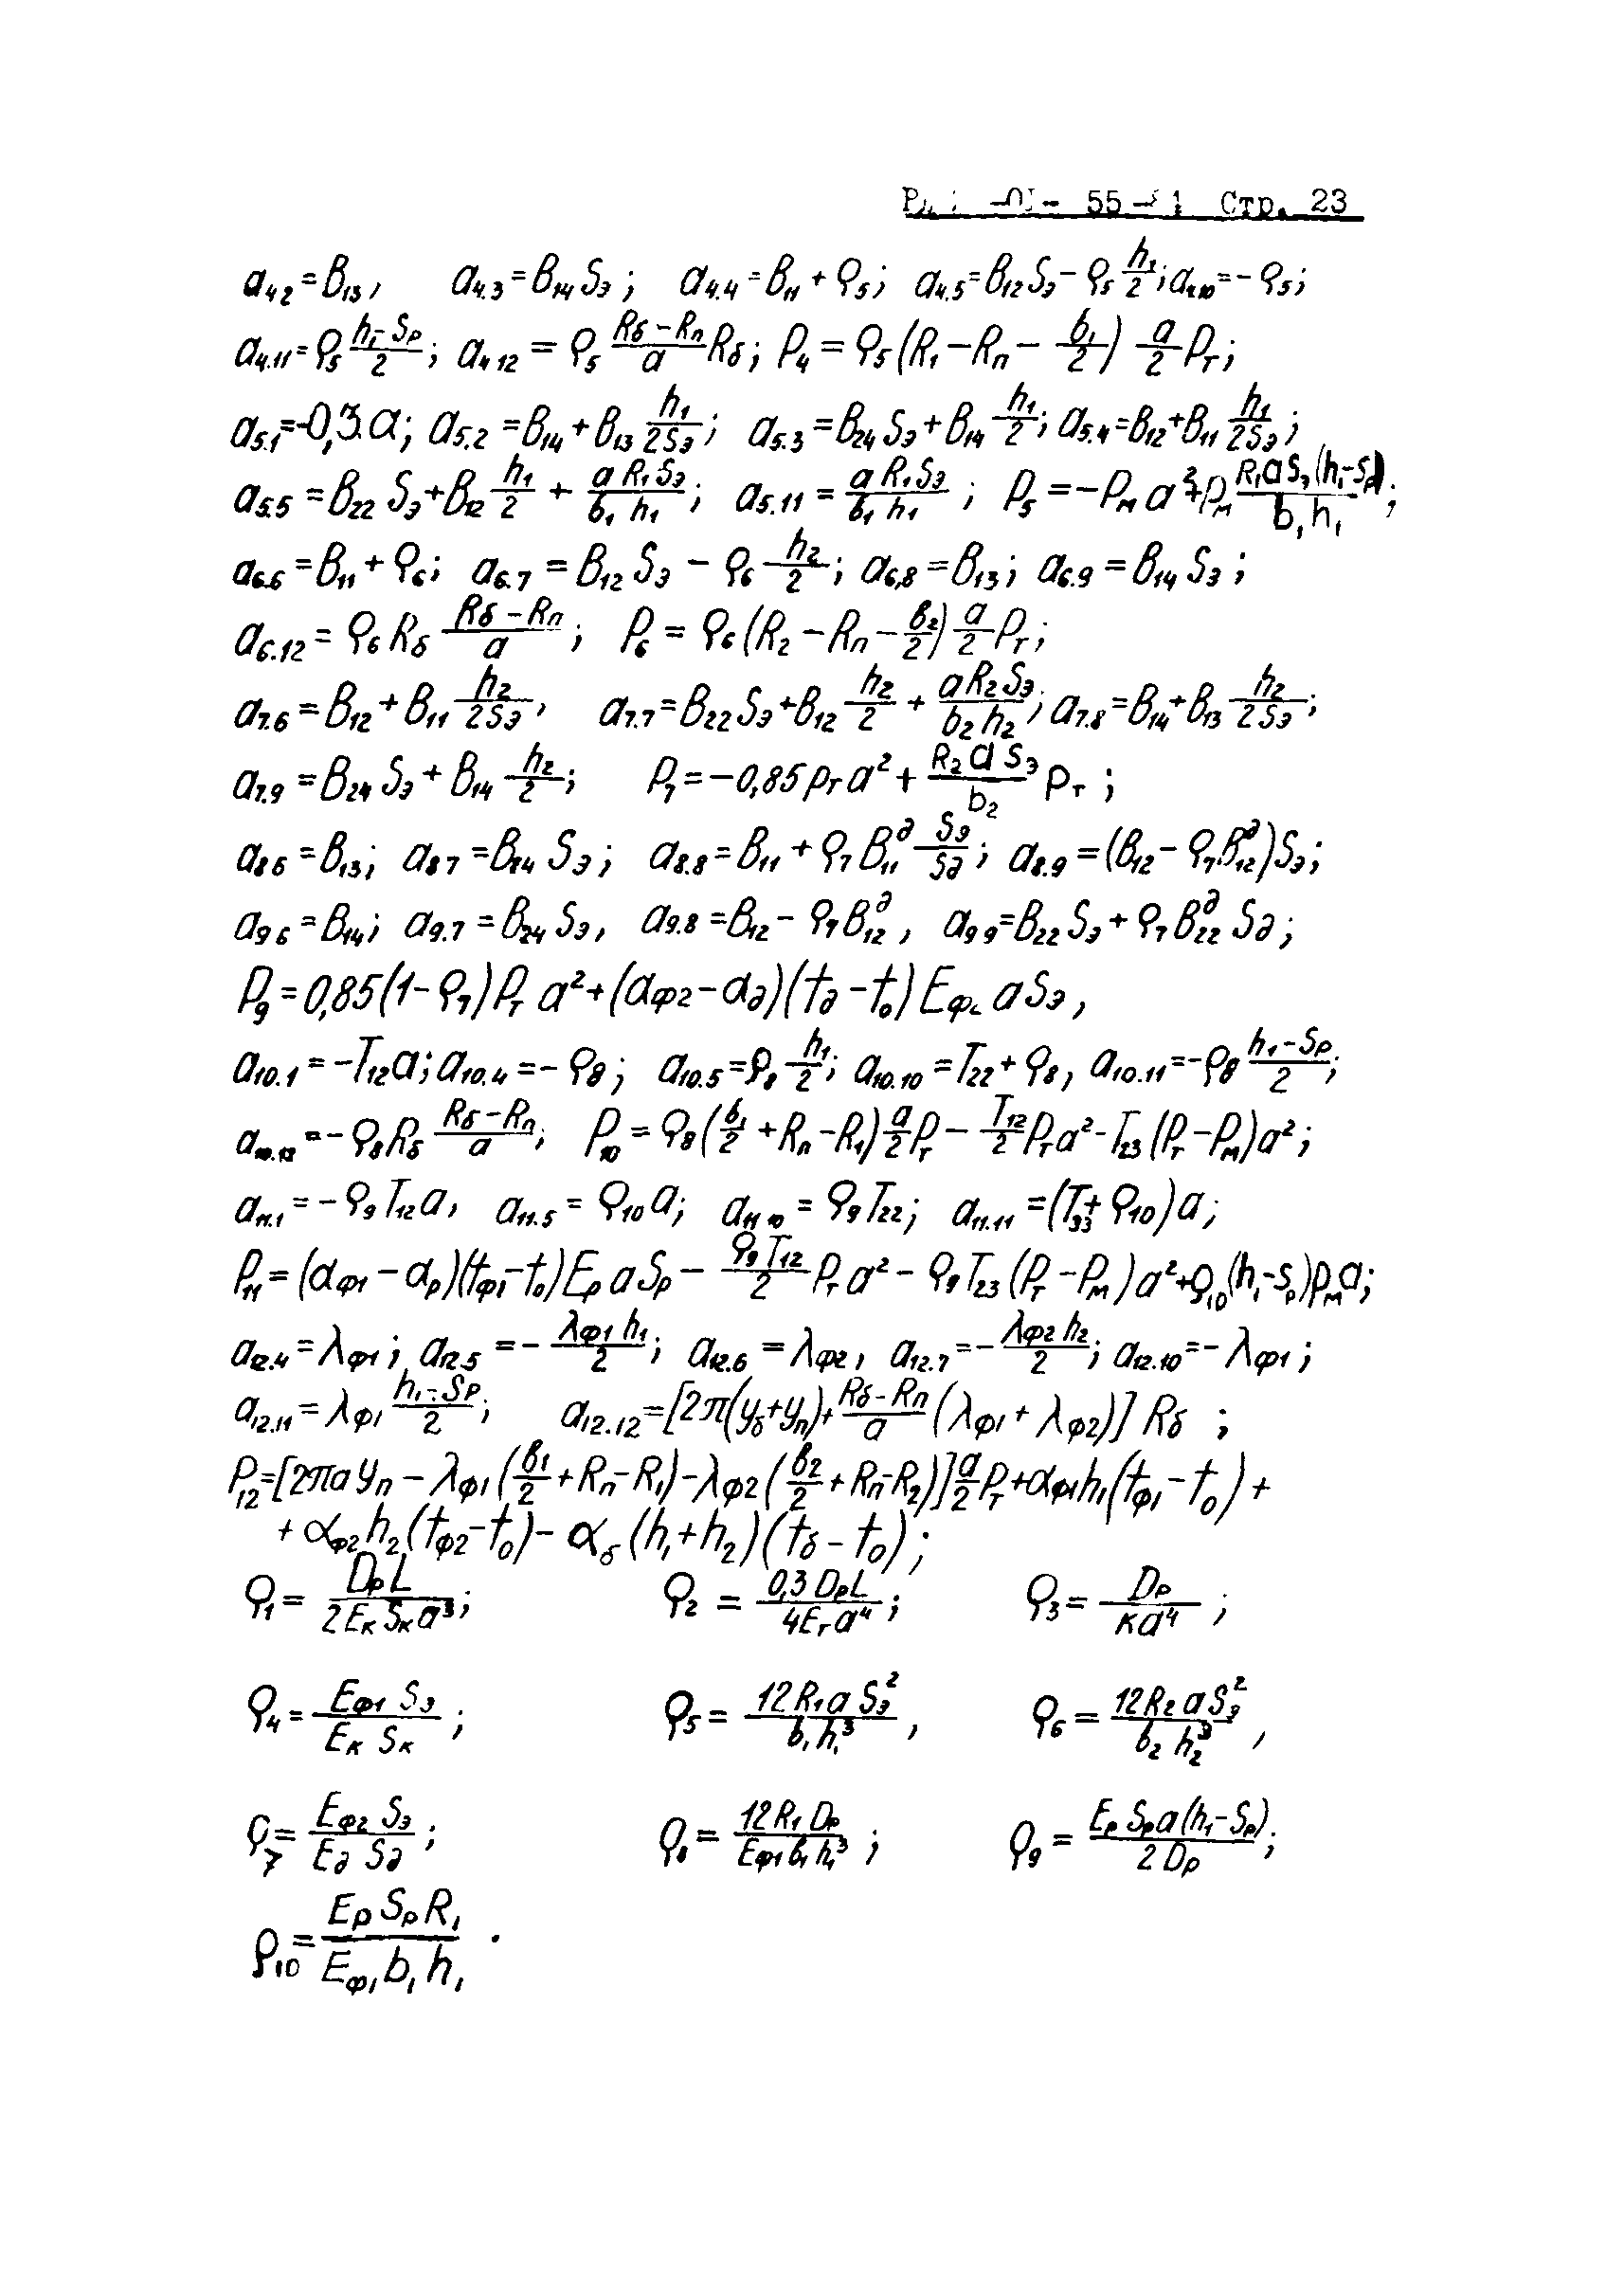 55 - 1 Стр. 23
a₄.₂ = B₁₃, a₄.₃ = B₁₄Sэ; a₄.₄ = B₁₁ + ϙ₅; a₄.₅ = B₁₂Sэ - ϙ₅ h₁/2; a₄.₁₀ = -ϙ₅;
a₄.₁₁ = ϙ₅ (h₁-Sр)/2; a₄.₁₂ = ϙ₅ (Rб-Rп)/a Rб; P₄ = ϙ₅(R₁ - Rп - b₁/2) a/2 Pт;
a₅.₁ = -0,3a; a₅.₂ = B₁₄ + B₁₃ h₁/2Sэ; a₅.₃ = B₂₄Sэ + B₁₄ h₁/2; a₅.₄ = B₁₂ + B₁₁ h₁/2Sэ;
a₅.₅ = B₂₂ Sэ + B₁₂ h₁/2 + aR₁Sэ/b₁h₁; a₅.₁₁ = aR₁Sэ/b₁h₁; P₅ = -Pм a² + Pм R₁aSэ(h₁-Sр)/b₁h₁;
a₆.₆ = B₁₁ + ϙ₆; a₆.₇ = B₁₂Sэ - ϙ₆ h₂/2; a₆,₈ = B₁₃; a₆.₉ = B₁₄Sэ;
a₆.₁₂ = ϙ₆Rб (Rб-Rп)/a; P₆ = ϙ₆(R₂ - Rп - в₂/2) a/2 Pт;
a₇.₆ = B₁₂ + B₁₁ h₂/2Sэ, a₇.₇ = B₂₂Sэ + B₁₂ h₂/2 + aR₂Sэ/b₂h₂; a₇.₈ = B₁₄ + B₁₃ h₂/2Sэ;
a₇.₉ = B₂₄Sэ + B₁₄ h₂/2; P₇ = -0,85pт a² + R₂aSэ/b₂ pт;
a₈₆ = B₁₃; a₈₇ = B₁₄Sэ; a₈.₈ = B₁₁ + ϙ₇B₁₁ᵈ Sэ/S∂; a₈.₉ = (B₁₂ - ϙ₇B₁₂ᵈ)Sэ;
a₉₆ = B₁₄; a₉.₇ = B₂₄Sэ, a₉.₈ = B₁₂ - ϙ₇B₁₂ᵈ, a₉₉ = B₂₂Sэ + ϙ₇B₂₂ᵈ S∂;
P₉ = 0,85(1-ϙ₇)Pт a² + (αф₂ - α∂)(t∂ - t₀)Eф₂ aSэ,
a₁₀.₁ = -T₁₂a; a₁₀.₄ = -ϙ₈; a₁₀.₅ = ϙ₈ h₁/2; a₁₀.₁₀ = T₂₂ + ϙ₈, a₁₀.₁₁ = -ϙ₈ (h₁-Sр)/2;
a₁₀.₁₂ = -ϙ₈Rб (Rб-Rп)/a; P₁₀ = ϙ₈(b₁/2 + Rп - R₁) a/2 Pт - T₁₂/2 Pт a² - T₂₃(Pт - Pм)a²;
a₁₁.₁ = -ϙ₉T₁₂a, a₁₁.₅ = ϙ₁₀a; a₁₁.₁₀ = ϙ₉T₂₂; a₁₁.₁₁ = (T₃₃ + ϙ₁₀)a;
P₁₁ = (αф₁ - αр)(tф₁ - t₀)Eр aSр - ϙ₉T₁₂/2 Pт a² - ϙ₉T₂₃(Pт - Pм)a² + ϙ₁₀(h₁-Sр)Pм a;
a₁₂.₄ = λф₁; a₁₂.₅ = -λф₁h₁/2; a₁₂.₆ = λф₂, a₁₂.₇ = -λф₂h₂/2; a₁₂.₁₀ = -λф₁;
a₁₂.₁₁ = λф₁ (h₁-Sр)/2; a₁₂.₁₂ = [2π(yб+yп) + (Rб-Rп)/a (λф₁ + λф₂)] Rб;
P₁₂ = [2πa yп - λф₁(в₁/2 + Rп - R₁) - λф₂(в₂/2 + Rп - R₂)] a/2 Pт + αф₁h₁(tф₁ - t₀) +
+ αф₂h₂(tф₂ - t₀) - αб(h₁+h₂)(tб - t₀);
ϙ₁ = DрL/2EкSкa³; ϙ₂ = 0,3DрL/4Eтa⁴; ϙ₃ = Dр/кa⁴;
ϙ₄ = Eф₁Sэ/EкSк; ϙ₅ = 12R₁aSэ²/b₁h₁³, ϙ₆ = 12R₂aSэ²/b₂h₂³,
ϙ₇ = Eф₂Sэ/E∂S∂; ϙ₈ = 12R₁Dр/Eф₁в₁h₁³; ϙ₉ = EрSрa(h₁-Sр)/2Dр;
ϙ₁₀ = EрSрR₁/Eф₁b₁h₁.